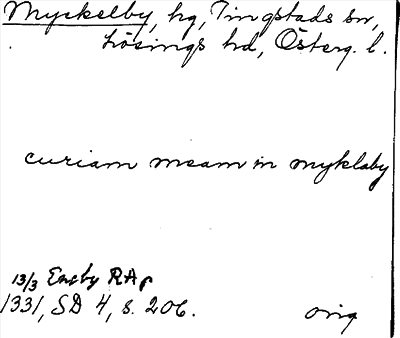 Myckelby, hg, Tingstads sn,
Lösings hd, Österg. l.
curiam meam in myklaby
13/3 Eneby RAp
1331, SD 4, s. 206.
orig